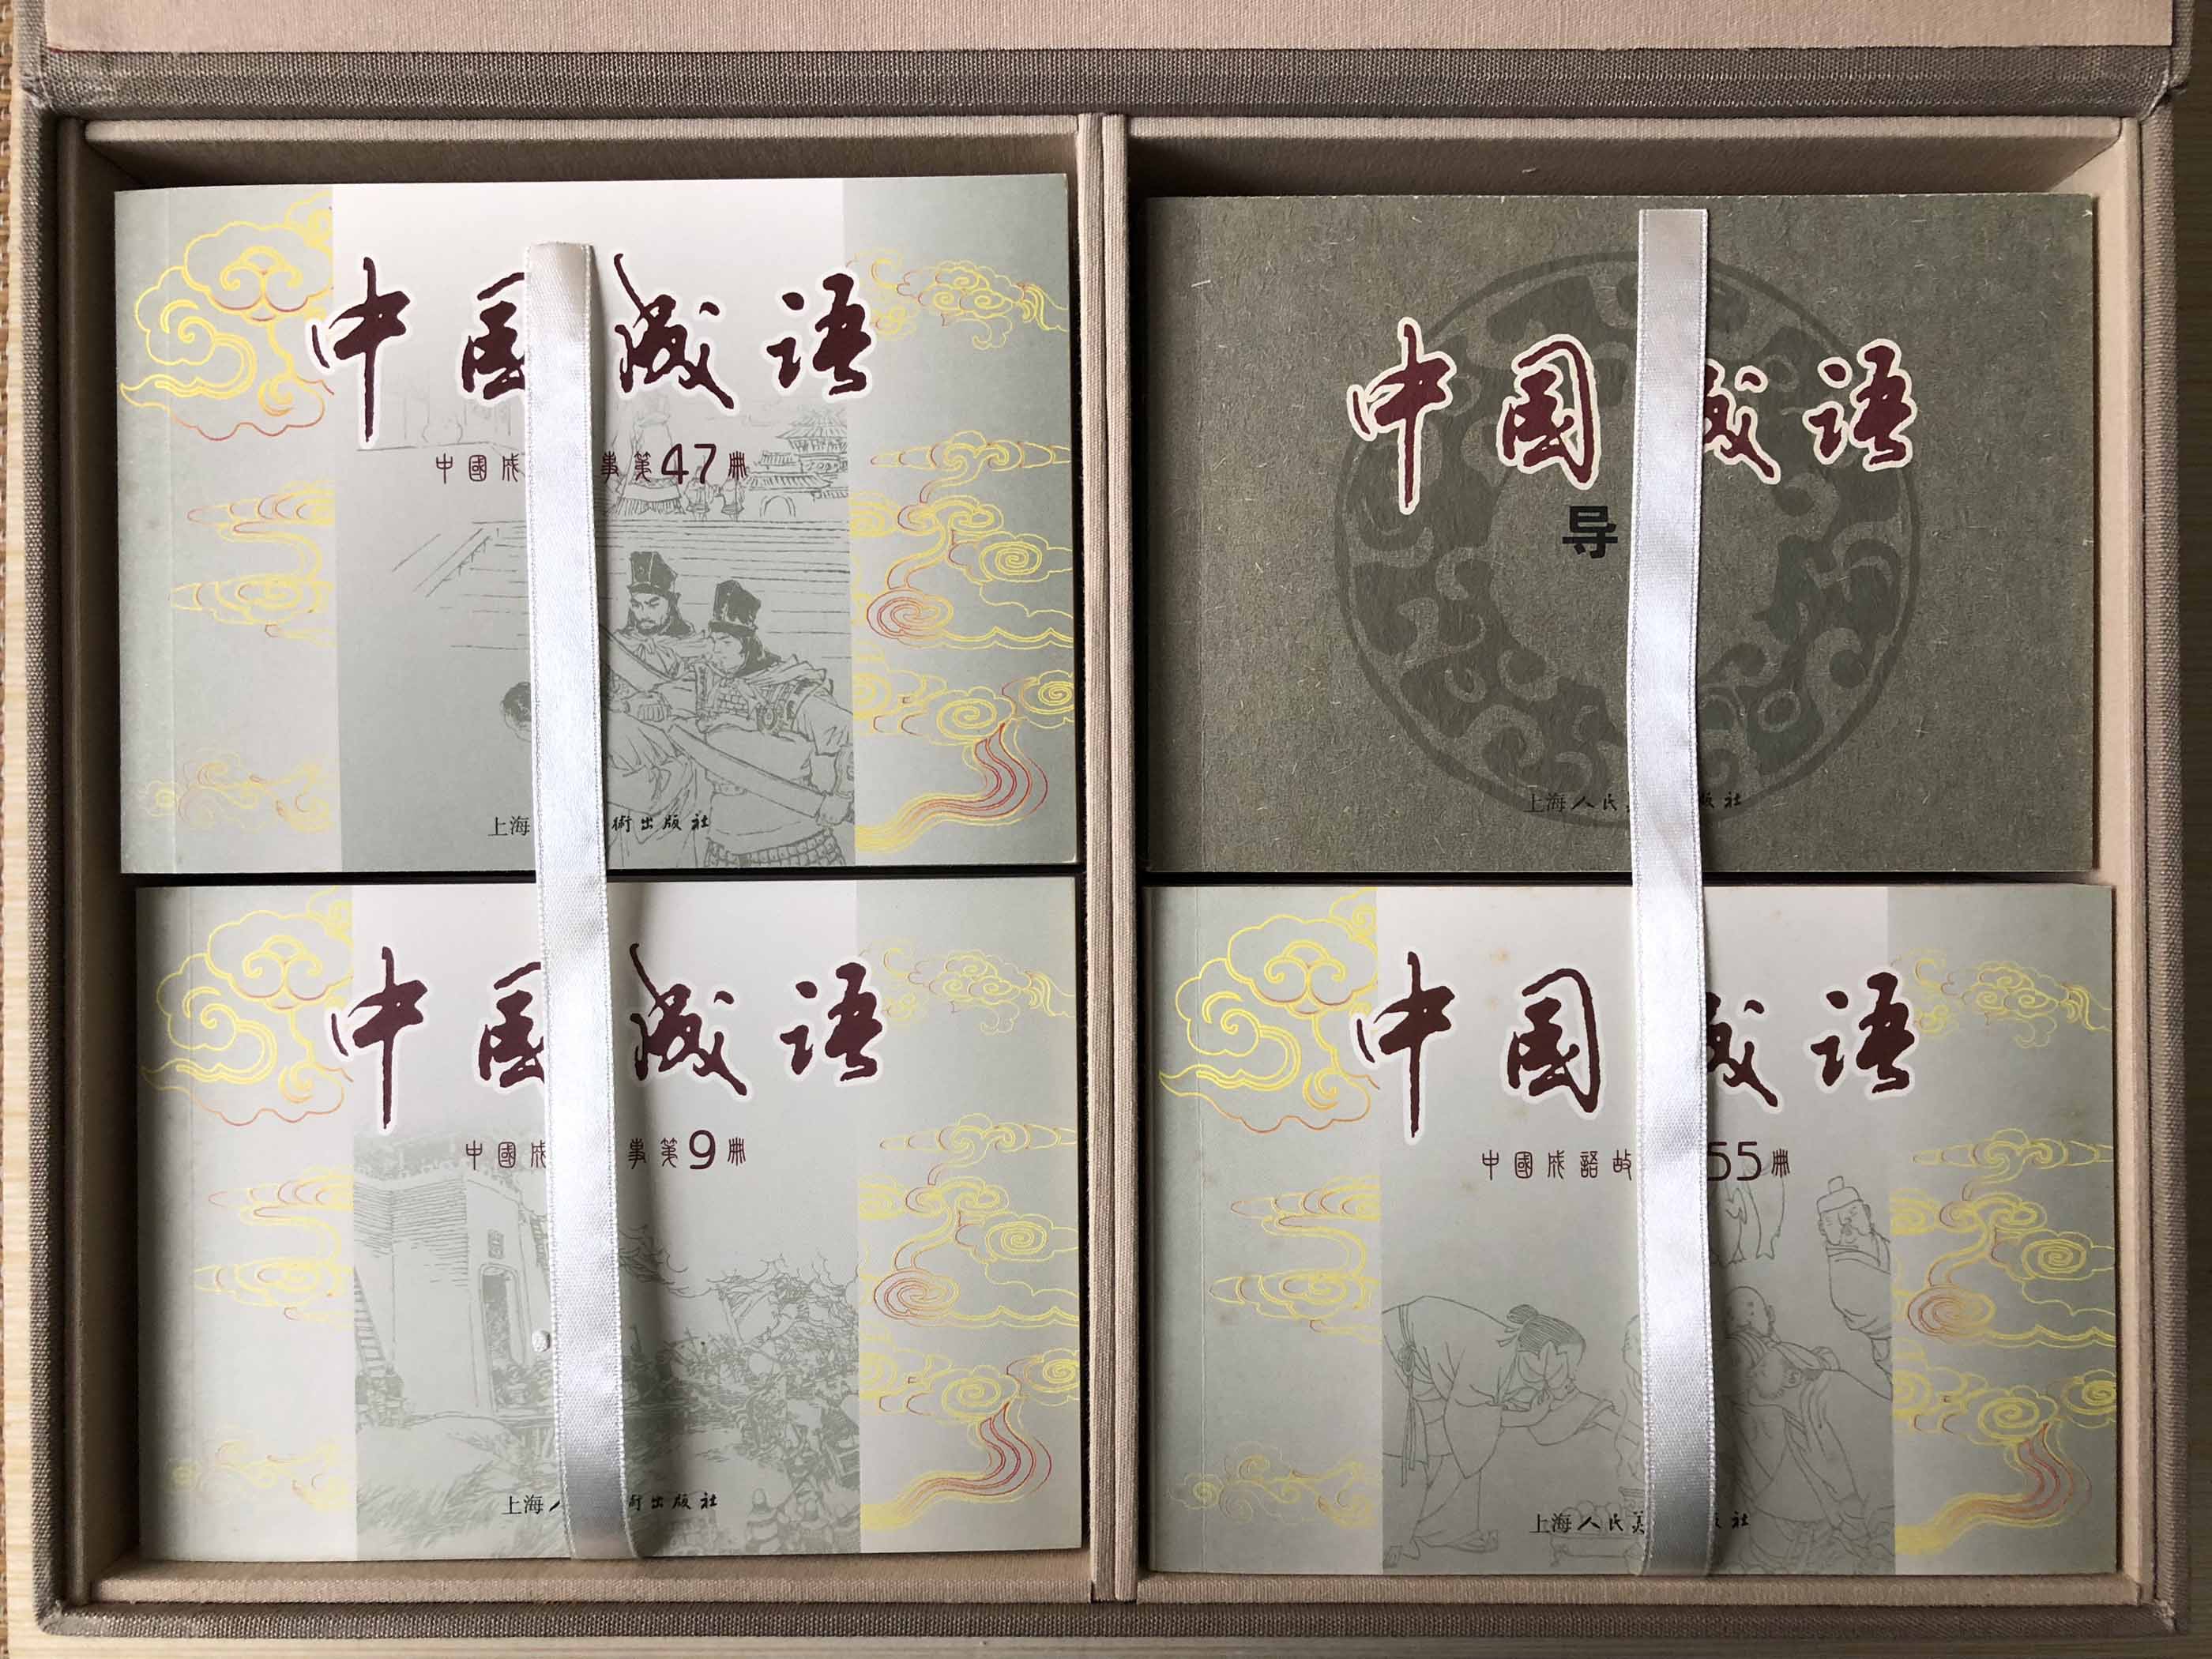 中国成语
中國成 事第47冊
上海 術出版社
中国成语
导
上海人民 版社
中国成语
中國成 事第9冊
上海人 術出版社
中国成语
中國成語故 55冊
上海人民美 版社